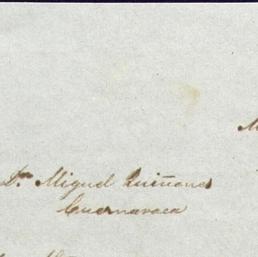 Dn Miguel Quiñones
Cuernavaca